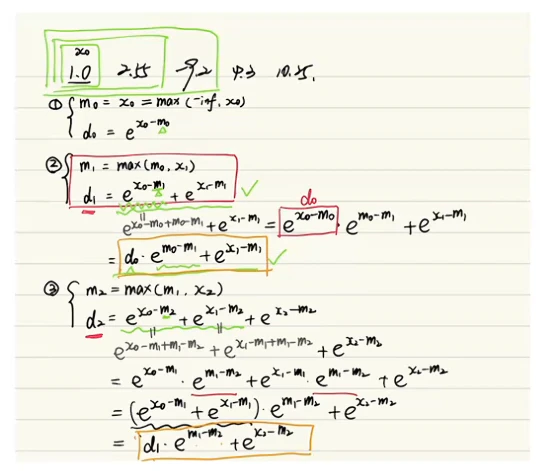 x₀
1.0 2.55 -9.2 4.3 10.25.
① { m₀ = x₀ = max(-inf, x₀)
d₀ = e^{x₀-m₀}
② { m₁ = max(m₀, x₁)
d₁ = e^{x₀-m₁} + e^{x₁-m₁} ✓
|| d₀
e^{x₀-m₀+m₀-m₁} + e^{x₁-m₁} = e^{x₀-m₀} · e^{m₀-m₁} + e^{x₁-m₁}
= d₀ · e^{m₀-m₁} + e^{x₁-m₁} ✓
③ { m₂ = max(m₁, x₂)
d₂ = e^{x₀-m₂} + e^{x₁-m₂} + e^{x₂-m₂}
|| ||
e^{x₀-m₁+m₁-m₂} + e^{x₁-m₁+m₁-m₂} + e^{x₂-m₂}
= e^{x₀-m₁} · e^{m₁-m₂} + e^{x₁-m₁} · e^{m₁-m₂} + e^{x₂-m₂}
= (e^{x₀-m₁} + e^{x₁-m₁}) · e^{m₁-m₂} + e^{x₂-m₂}
= d₁ · e^{m₁-m₂} + e^{x₂-m₂}